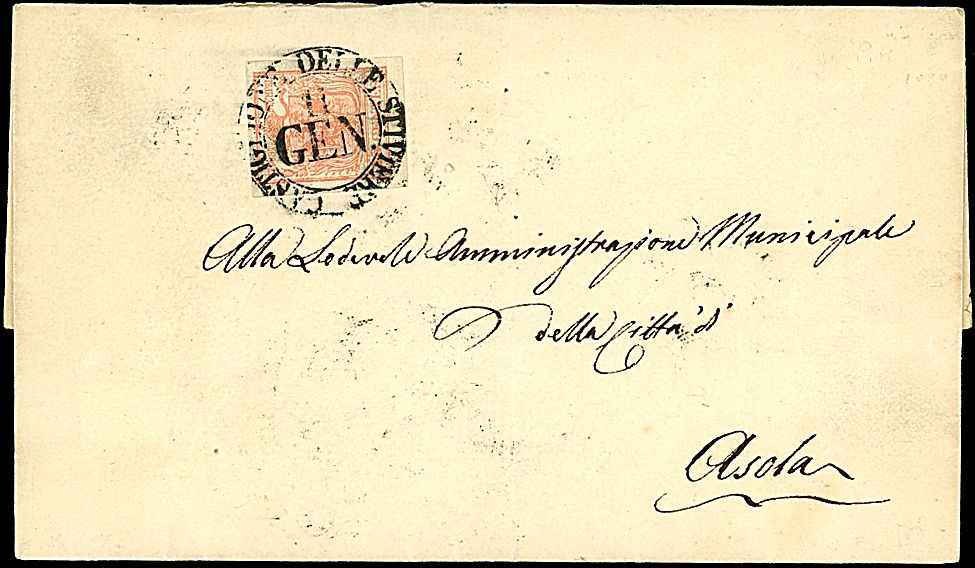 CASTIGLIONE DELLE STIVIERE
11
GEN.
Alla Lodevole Amministrazione Municipale
della Città di
Asola